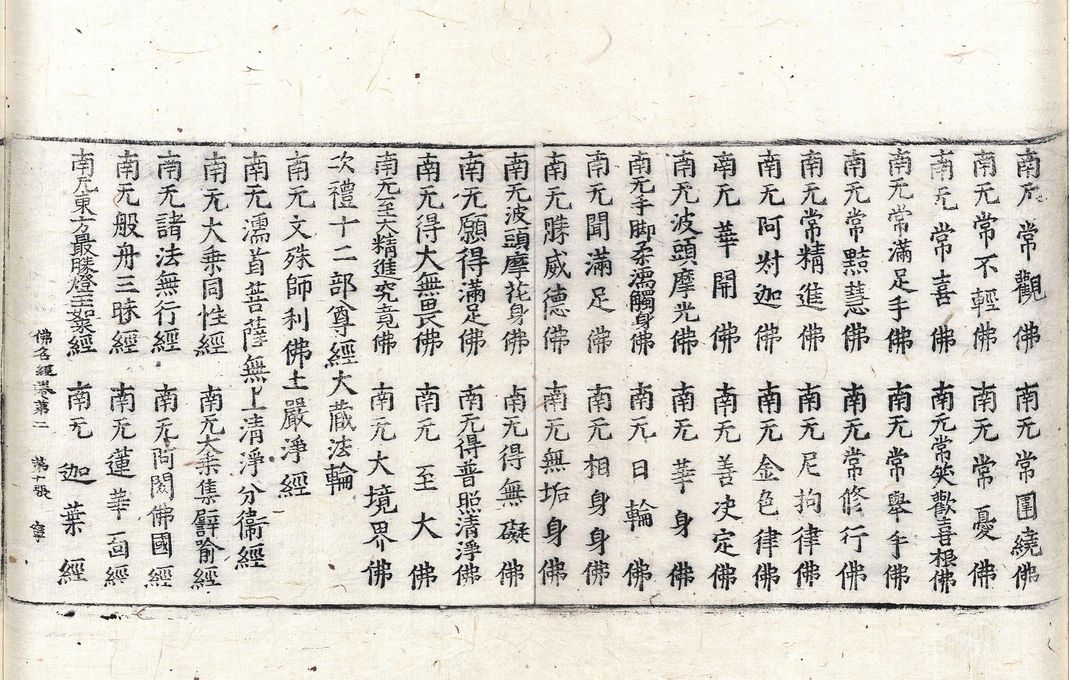 南无常觀佛　南无常圍繞佛
南无常不輕佛　南无常憂佛
南无常喜佛　南无常笑歡喜根佛
南无常滿足手佛　南无常舉手佛
南无常黠慧佛　南无常修行佛
南无常精進佛　南无尼拘律佛
南无阿尌迦佛　南无金色律佛
南无華開佛　南无善决定佛
南无波頭摩光佛　南无華身佛
南无手脚柔濡觸身佛　南无日輪佛
南无聞滿足佛　南无相身身佛
南无勝威德佛　南无無垢身佛
南无波頭摩花身佛　南无得無礙佛
南无願得滿足佛　南无得普照清淨佛
南无得大無畏佛　南无至大佛
南无至大精進究竟佛　南无大境界佛
次禮十二部尊經大藏法輪
南无文殊師利佛土嚴淨經
南无濡首菩薩無上清淨分衞經
南无大乘同性經　南无大乘集譬喻經
南无諸法無行經　南无阿閦佛國經
南无般舟三昧經　南无蓮華面經
南无東方最勝燈王如來經　南无迦葉經
佛名經卷第二　第十張　寧